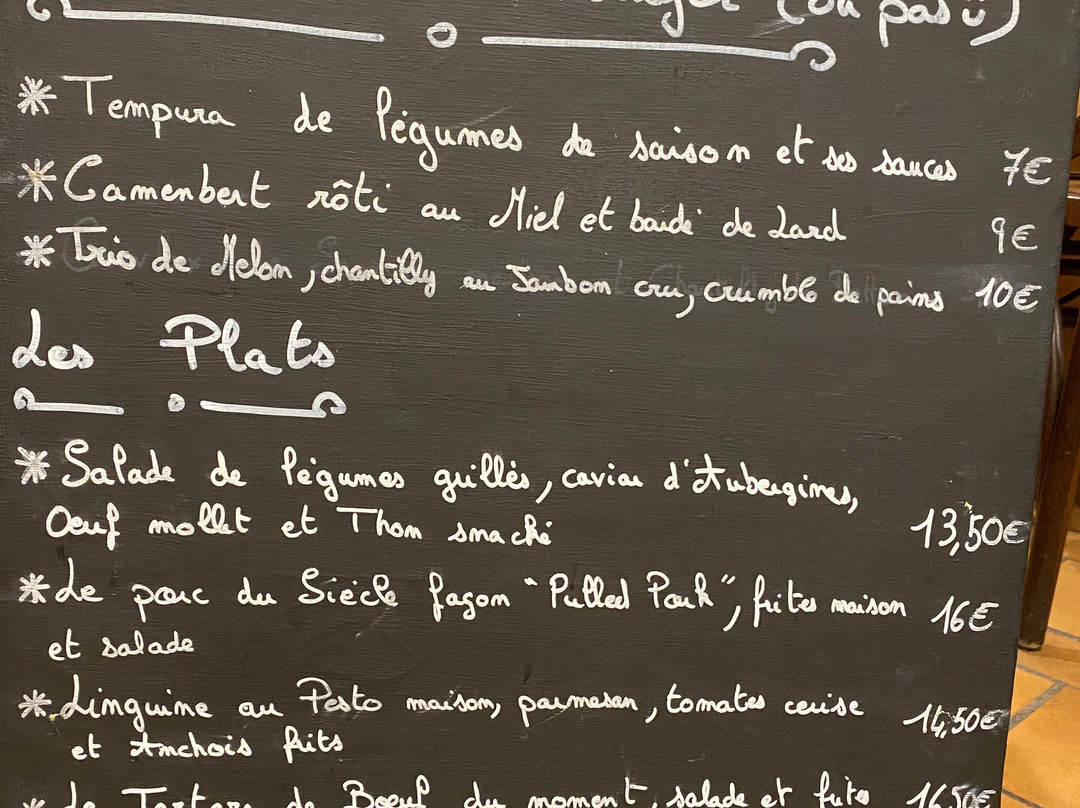 (ou pas ü)
* Tempura de légumes de saison et ses sauces 7€
* Camenbert rôti au Miel et baidé de Lard 9€
* Trio de Melon, chantilly au Jambon cru, crumble de pains 10€
Les Plats
* Salade de légumes grillés, caviar d'Aubergines,
Oeuf mollet et Thon snaché 13,50€
* Le porc du Siècle façon "Pulled Pork", frites maison 16€
et salade
* Linguine au Pesto maison, parmesan, tomates cerise 14,50€
et Anchois frits
* Le Tartare de Boeuf du moment, salade et frites 16,50€